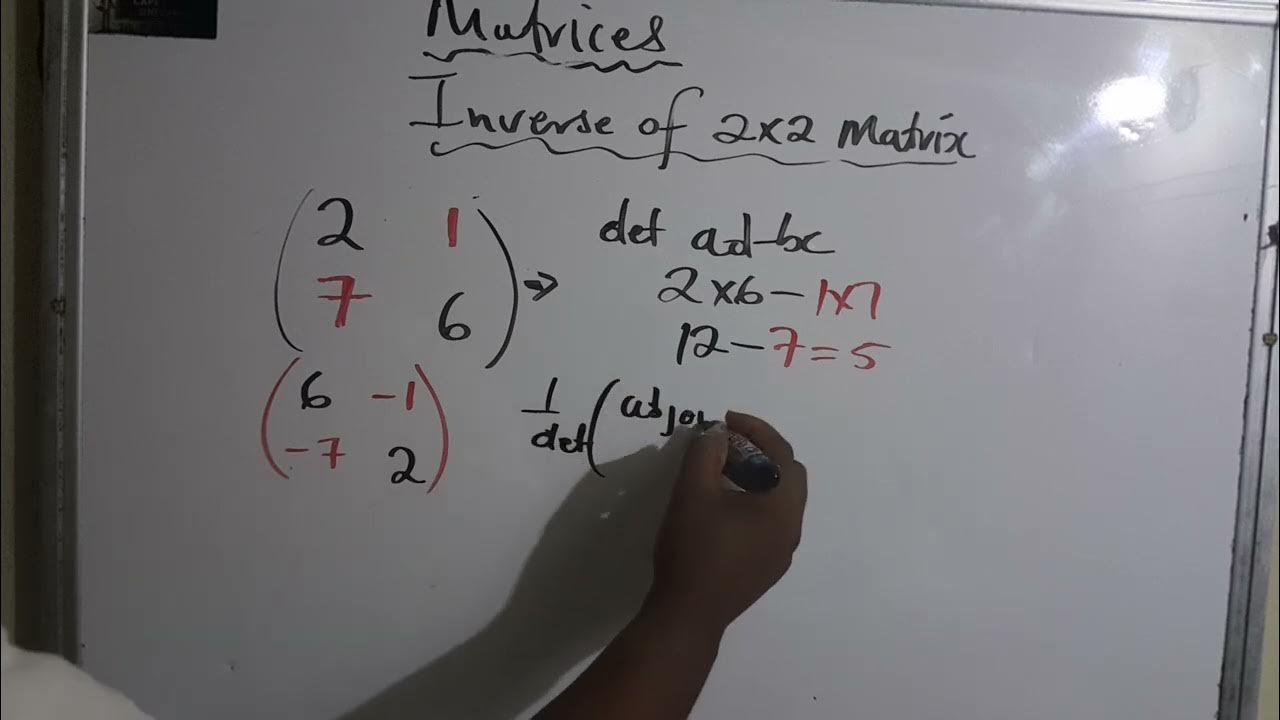 Matrices
Inverse of 2x2 Matrix
(2 1
7 6) ⇒
def ad-bc
2×6-1×7
12-7=5
(6 -1
-7 2)
1
det(adjo